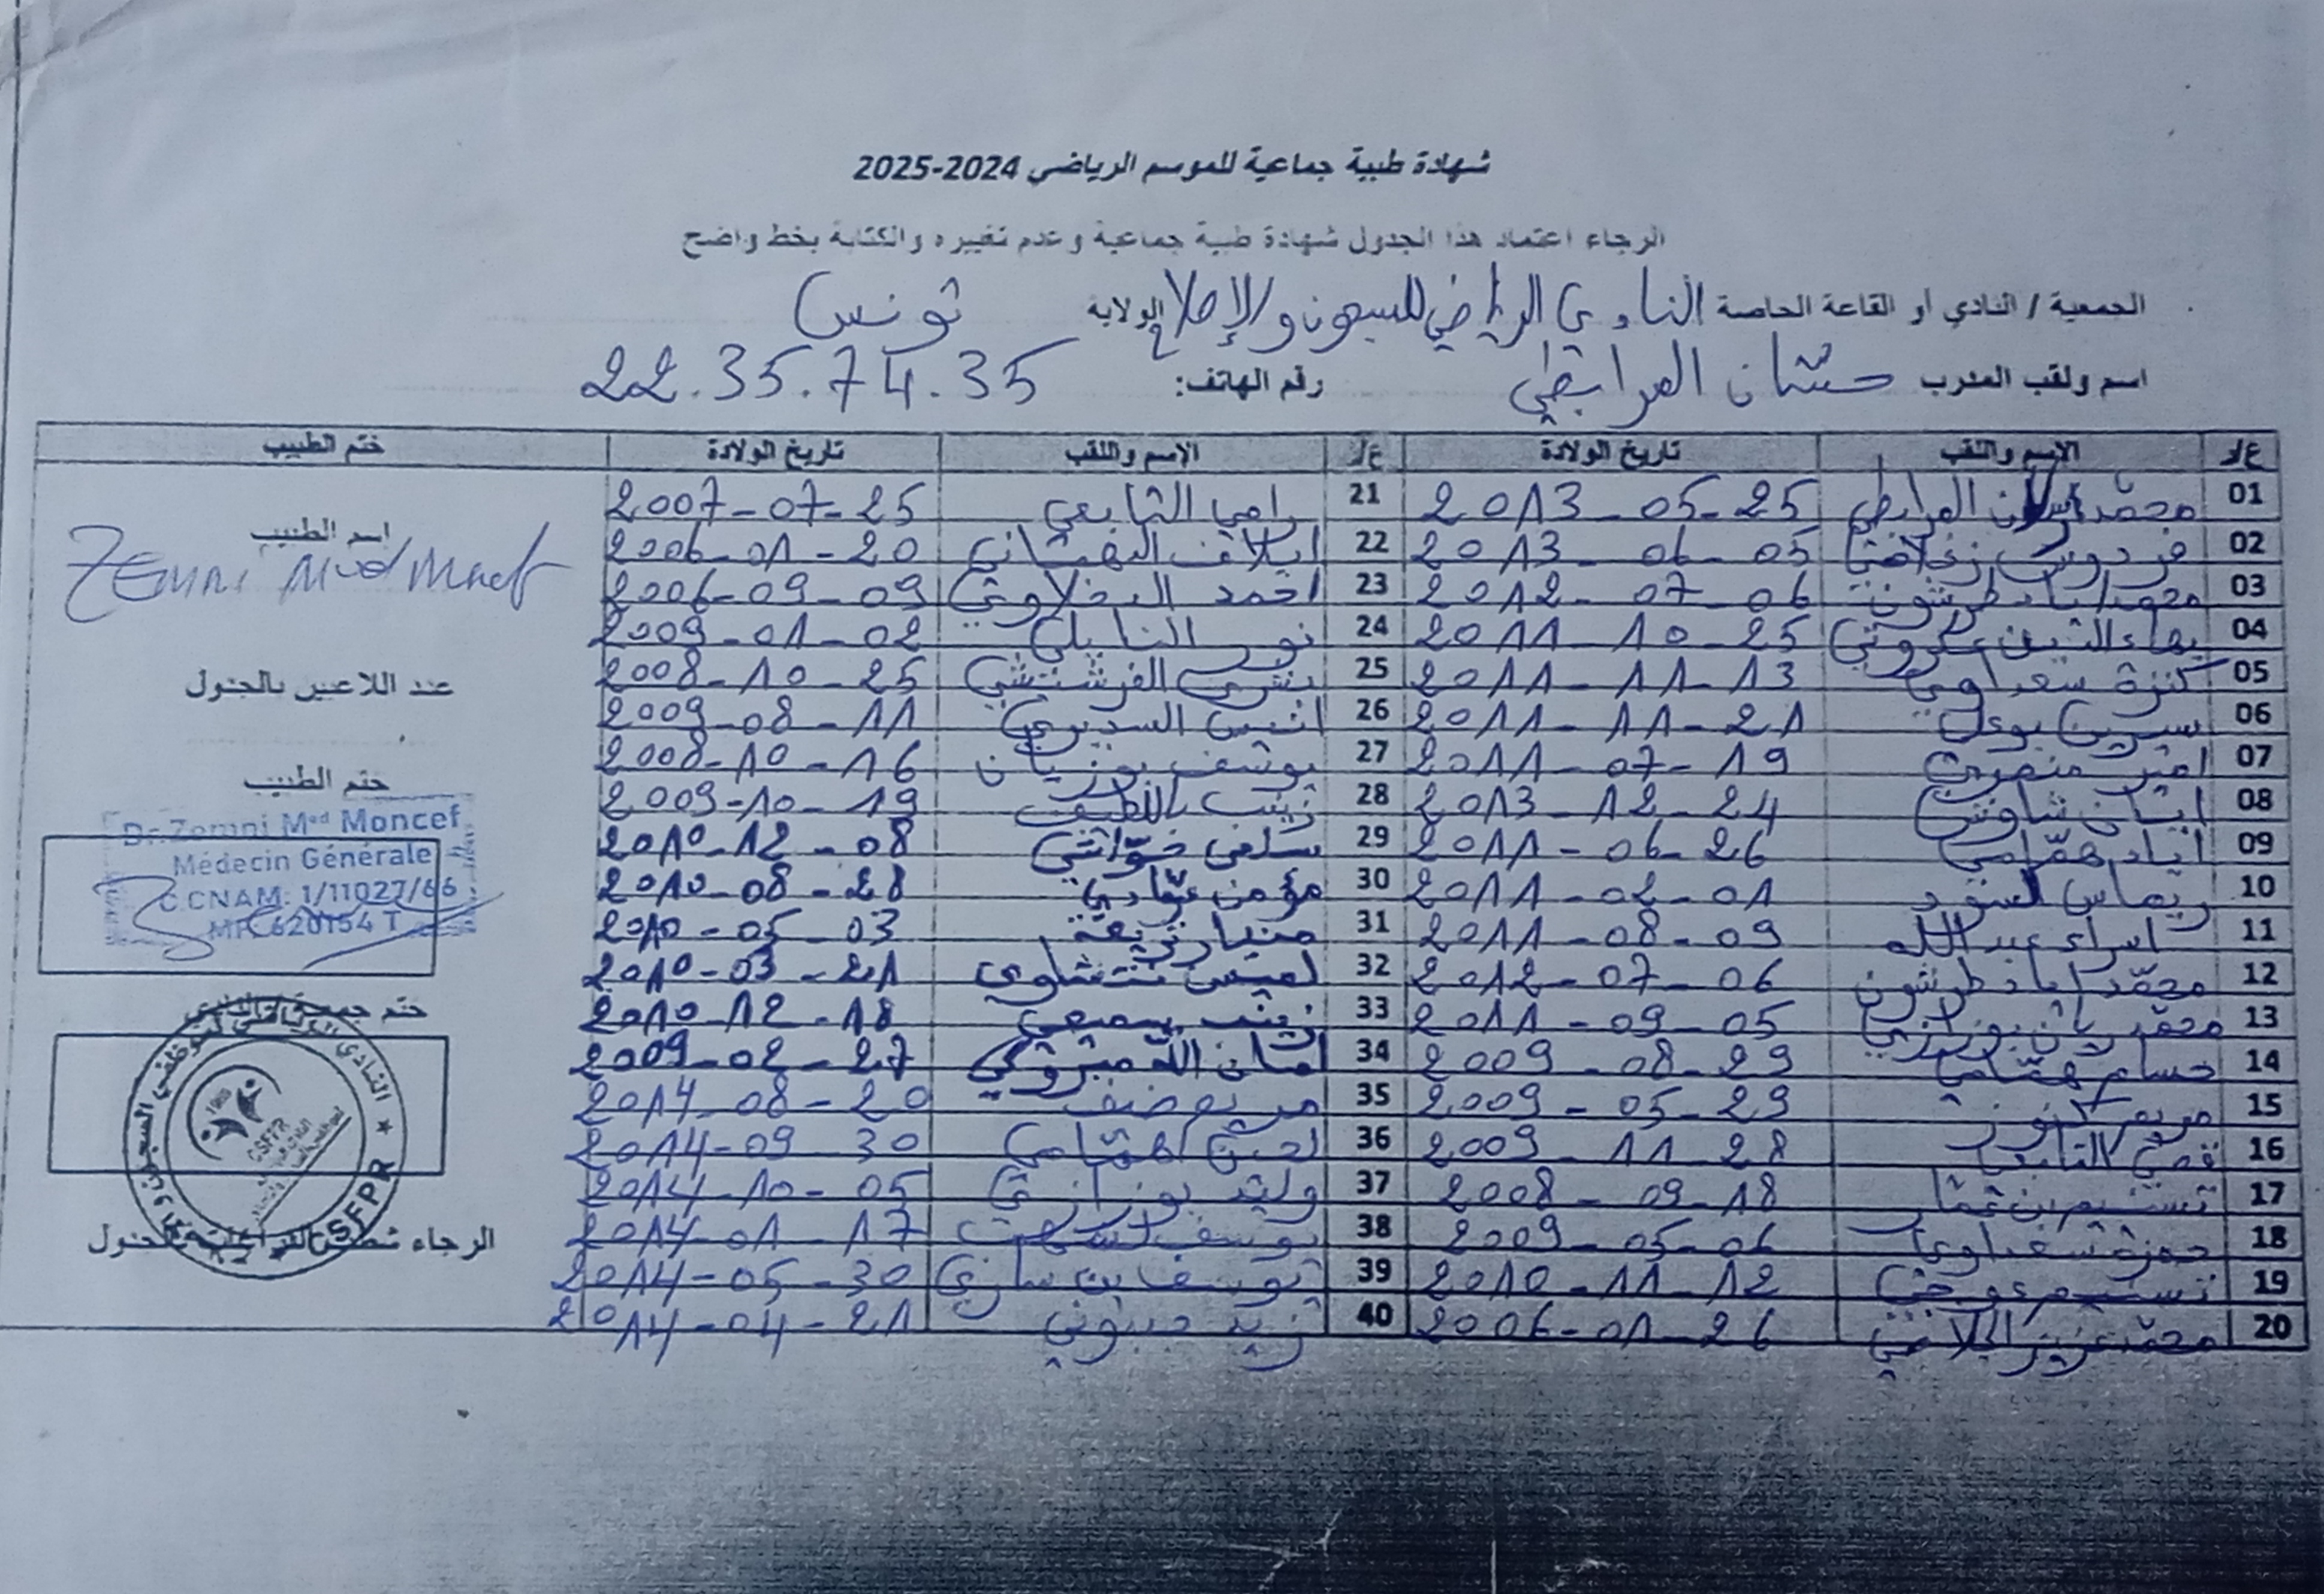 شهادة طبية جماعية للموسم الرياضي 2024-2025
الرجاء اعتماد هذا الجدول شهادة طبية جماعية وعدم تغييره والكتابة بخط واضح
الجمعية / النادي أو القاعة الخاصة النادي الرياضي للسجون والإصلاح الولاية تونس
اسم ولقب المدرب حسان المرابطي رقم الهاتف: 22.35.74.35
ع/ر الاسم واللقب تاريخ الولادة ع/ر الاسم واللقب تاريخ الولادة ختم الطبيب
01 محمد المرابطي 2013-05-25 21 رامي التابعي 2007-07-25
02 فردوس 2013-06-05 22 ايلاف 2006-01-20
03 محمد اياد طرشون 2012-07-06 23 احمد الدخلاوي 2006-09-09
04 بهاء الدين 2011-10-25 24 نور النايلي 2009-01-02
05 كنزة سعداوي 2011-11-13 25 يسرى الفرشيشي 2008-10-25
06 سيرين 2011-11-21 26 انيس السديري 2009-08-11
07 امير منصري 2011-07-19 27 يوسف بوزيان 2008-10-16
08 شاوش 2013-12-24 28 زينب باللطيف 2009-10-19
09 اياد همّامي 2011-06-26 29 سلمى 2010-12-08
10 ريماس 2011-02-01 30 مؤمن عيّادي 2010-08-28
11 اسراء عبد الله 2011-08-09 31 2010-05-03
12 محمّد اياد طرشون 2012-07-06 32 لميس 2010-03-21
13 محمد ريان بوزازي 2011-09-05 33 زينب سميعي 2010-12-18
14 حسام همّامي 2009-08-29 34 امان الله مبروكي 2009-02-27
15 مريم 2009-05-29 35 مريم ضيف 2014-08-20
16 قصي التابعي 2009-11-28 36 لجين همّامي 2014-09-30
17 تسنيم بن عمار 2008-09-18 37 وليد بوزازي 2014-10-05
18 حمزة سعداوي 2009-05-06 38 يوسف 2014-01-17
19 تسنيم 2010-11-12 39 يوسف بن ساسي 2014-05-30
20 محمّد عزيز 2006-01-26 40 زيد جبنوني 2014-04-21
اسم الطبيب
Zemni Med Moncef
عدد اللاعبين بالجدول
ختم الطبيب
Dr. Zemni Med Moncef
Médecin Générale
C.CNAM: 1/11027/66
MF: 620154 T
ختم جمعية / النادي
CSFPR
الرجاء